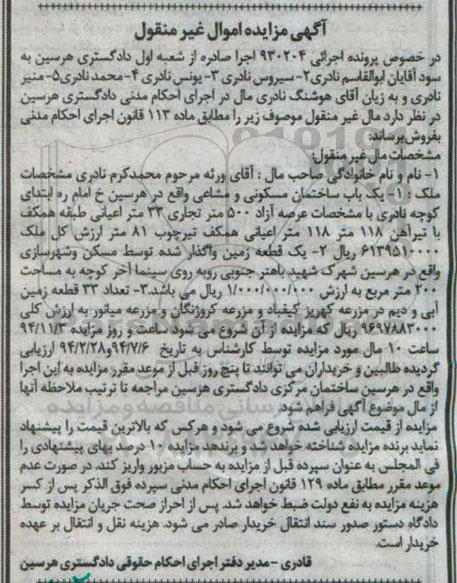 آگهی مزایده اموال غیر منقول
در خصوص پرونده اجرائی ۹۳۰۲۰۴ اجرا صادره از شعبه اول دادگستری هرسین به
سود آقایان ابوالقاسم نادری۲- سیروس نادری ۳- یونس نادری ۴- محمد نادری۵- منیر
نادری و به زیان آقای هوشنگ نادری مال در اجرای احکام مدنی دادگستری هرسین
در نظر دارد مال غیر منقول موصوف زیر را مطابق ماده ۱۱۳ قانون اجرای احکام مدنی
بفروش برساند:
مشخصات مال غیر منقول:
۱- نام و نام خانوادگی صاحب مال : آقای ورثه مرحوم محمدکرم نادری مشخصات
ملک : ۱- یک باب ساختمان مسکونی و مشاعی واقع در هرسین خ امام ره ابتدای
کوچه نادری با مشخصات عرصه آزاد ۵۰۰ متر تجاری ۳۳ متر اعیانی طبقه همکف
با تیرآهن ۱۱۸ متر ۱۱۸ متر اعیانی همکف تیرچوب ۸۱ متر ارزش کل ملک
۶۱۳۹۵۱۰۰۰۰ ریال ۲- یک قطعه زمین واگذار شده توسط مسکن وشهرسازی
واقع در هرسین شهرک شهید باهنر جنوبی روبه روی سینما آخر کوچه به مساحت
۲۰۰ متر مربع به ارزش ۱/۰۰۰/۰۰۰/۰۰۰ ریال می باشد.۳- تعداد ۳۳ قطعه زمین
آبی و دیم در مزرعه کهریز کیقباد و مزرعه کروژنگان و مزرعه میانور به ارزش کلی
۹۶۹۷۸۸۳۰۰۰ ریال که مزایده از آن شروع می شود ساعت و روز مزایده ۹۴/۱۱/۳
ساعت ۱۰ مال مورد مزایده توسط کارشناس به تاریخ ۹۴/۷/۶و۹۴/۲/۲۸ ارزیابی
گردیده طالبین و خریداران می توانند تا پنج روز قبل از موعد مقرر مزایده به این اجرا
واقع در هرسین ساختمان مرکزی دادگستری هرسین مراجعه تا ترتیب ملاحظه آنها
از مال موضوع آگهی فراهم شود
مزایده از قیمت ارزیابی شده شروع می شود و هرکس که بالاترین قیمت را پیشنهاد
نماید برنده مزایده شناخته خواهد شد و برندهد مزایده ۱۰ درصد بهای پیشنهادی را
فی المجلس به عنوان سپرده قبل از مزایده به حساب مزبور واریز کند. در صورت عدم
موعد مقرر مطابق ماده ۱۲۹ قانون اجرای احکام مدنی سپرده فوق الذکر پس از کسر
هزینه مزایده به نفع دولت ضبط خواهد شد. پس از احراز صحت جریان مزایده توسط
دادگاه دستور صدور سند انتقال خریدار صادر می شود. هزینه نقل و انتقال بر عهده
خریدار است.
قادری - مدیر دفتر اجرای احکام حقوقی دادگستری هرسین